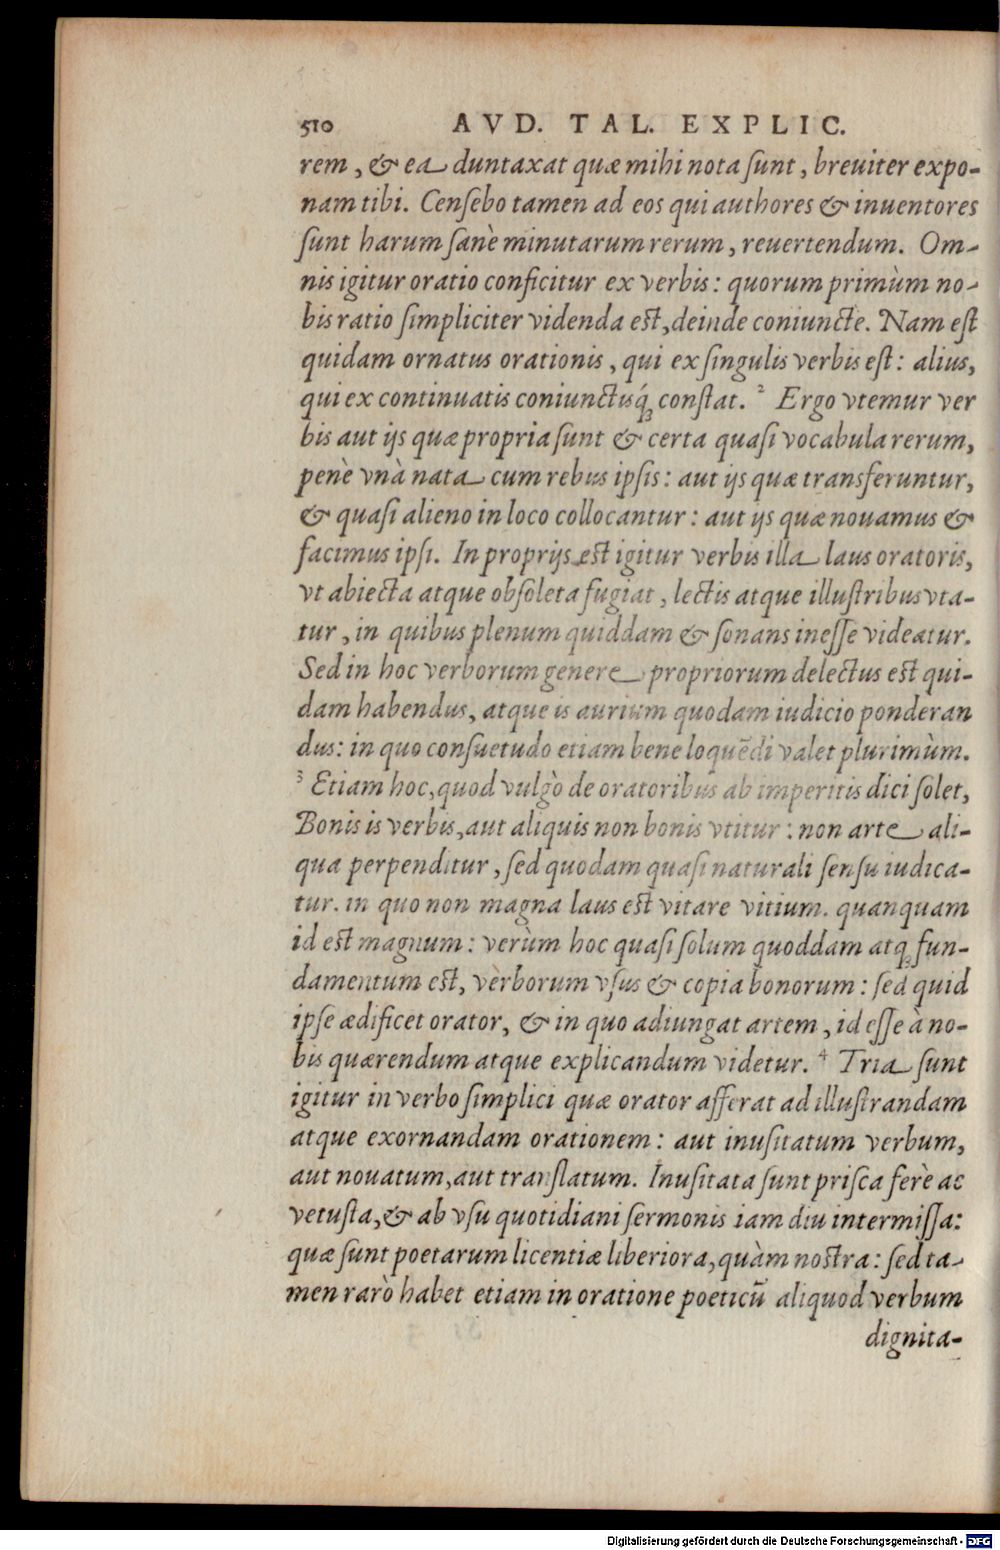 510 AVD. TAL. EXPLIC.
rem, & ea duntaxat quæ mihi nota ſunt, breuiter expo-
nam tibi. Cenſebo tamen ad eos qui authores & inuentores
ſunt harum ſanè minutarum rerum, reuertendum. Om-
nis igitur oratio conficitur ex verbis: quorum primùm no-
bis ratio ſimpliciter videnda eſt, deinde coniunctè. Nam eſt
quidam ornatus orationis, qui ex ſingulis verbis eſt: alius,
qui ex continuatis coniunctisq́; conſtat. ² Ergo vtemur ver
bis aut ijs quæ propria ſunt & certa quaſi vocabula rerum,
penè vnà nata cum rebus ipſis: aut ijs quæ transferuntur,
& quaſi alieno in loco collocantur: aut ijs quæ nouamus &
facimus ipſi. In proprijs eſt igitur verbis illa laus oratoris,
vt abiecta atque obſoleta fugiat, lectis atque illuſtribus vta-
tur, in quibus plenum quiddam & ſonans ineſſe videatur.
Sed in hoc verborum genere propriorum delectus eſt qui-
dam habendus, atque is aurium quodam iudicio ponderan
dus: in quo conſuetudo etiam bene loquēdi valet plurimùm.
³ Etiam hoc, quod vulgò de oratoribus ab imperitis dici ſolet,
Bonis is verbis, aut aliquis non bonis vtitur: non arte ali-
qua perpenditur, ſed quodam quaſi naturali ſenſu iudica-
tur. in quo non magna laus eſt vitare vitium. quanquam
id eſt magnum: verùm hoc quaſi ſolum quoddam atq; fun-
damentum eſt, verborum vſus & copia bonorum: ſed quid
ipſe ædificet orator, & in quo adiungat artem, id eſſe à no-
bis quærendum atque explicandum videtur. ⁴ Tria ſunt
igitur in verbo ſimplici quæ orator afferat ad illuſtrandam
atque exornandam orationem: aut inuſitatum verbum,
aut nouatum, aut tranſlatum. Inuſitata ſunt priſca ferè ac
vetuſta, & ab vſu quotidiani ſermonis iam diu intermiſſa:
quæ ſunt poetarum licentiæ liberiora, quàm noſtra: ſed ta-
men rarò habet etiam in oratione poeticū aliquod verbum
dignita-
Digitalisierung gefördert durch die Deutsche Forschungsgemeinschaft - DFG